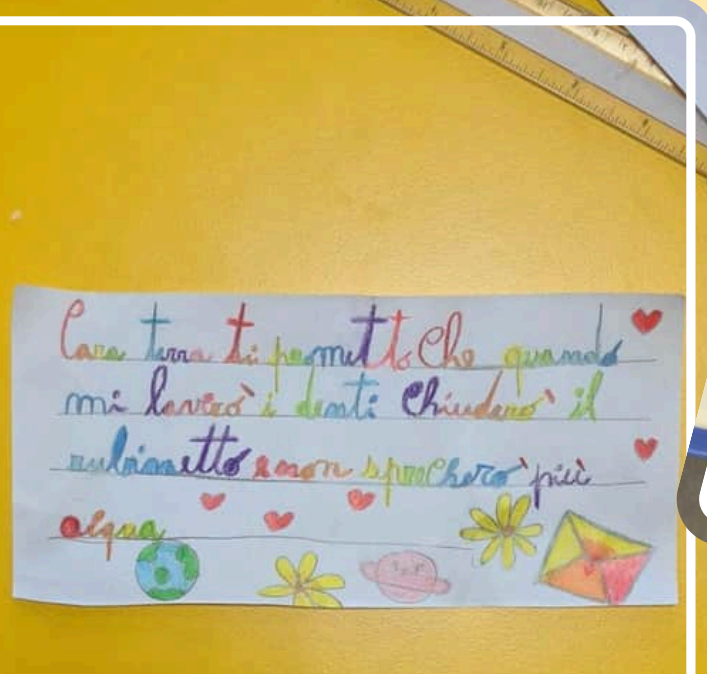 Cara terra ti prometto Che quando
mi laverò i denti Chiuderò il
rubinetto e non sprecherò più
acqua